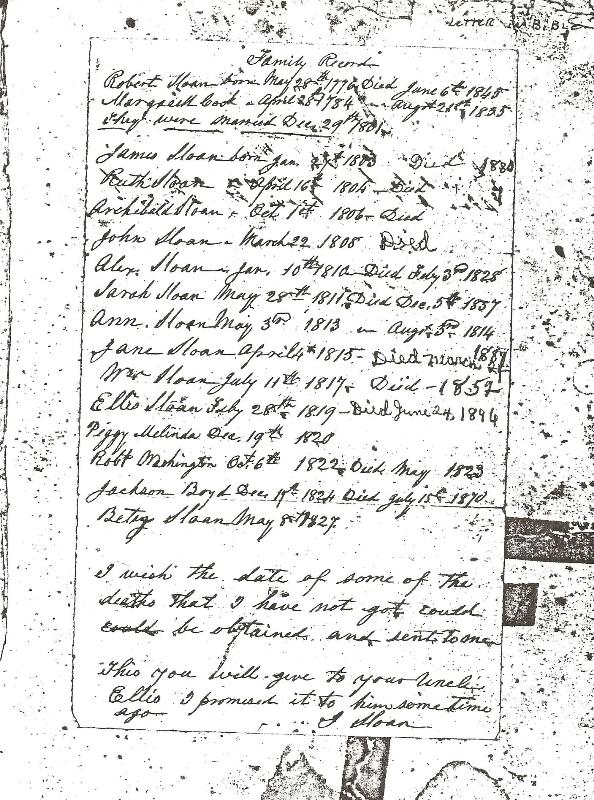 LETTER IN BIBLE
Family Record
Robert Sloan born May 28th 1776 Died June 6th 1845
Margaret Cock " April 28th 1784 " Augst 28st 1835
They were married Dec. 29th 1801.
James Sloan born Jan. 1803 Died 1880
Ruth Sloan " April 16th 1804 - Died
Archibald Sloan " Oct 1st 1806 - Died
John Sloan " March 22 1808 Died
Alex. Sloan " Jan. 10th 1810 - Died July 3rd 1828
Sarah Sloan May 28th 1811, Died Dec. 5th 1857
Ann. Sloan May 3rd 1813 " Augst. 3rd 1814
Jane Sloan April 4th 1815 - Died March 1887
Wm Sloan July 11th 1817, Died - 1852
Ellis Sloan Feby 28th 1819 - Died June 24, 1894
Peggy Melinda Dec. 19th 1820
Robt Washington Oct. 6th 1822, Died May 1823
Jackson Boyd Dec. 19th 1824 Died July 15th 1870.
Betsy Sloan May 8th 1827
I wish the date of some of the
deaths that I have not got could
could be obtained and sent to me
This you will give to your Uncle
Ellis I promised it to him sometime
ago J Sloan